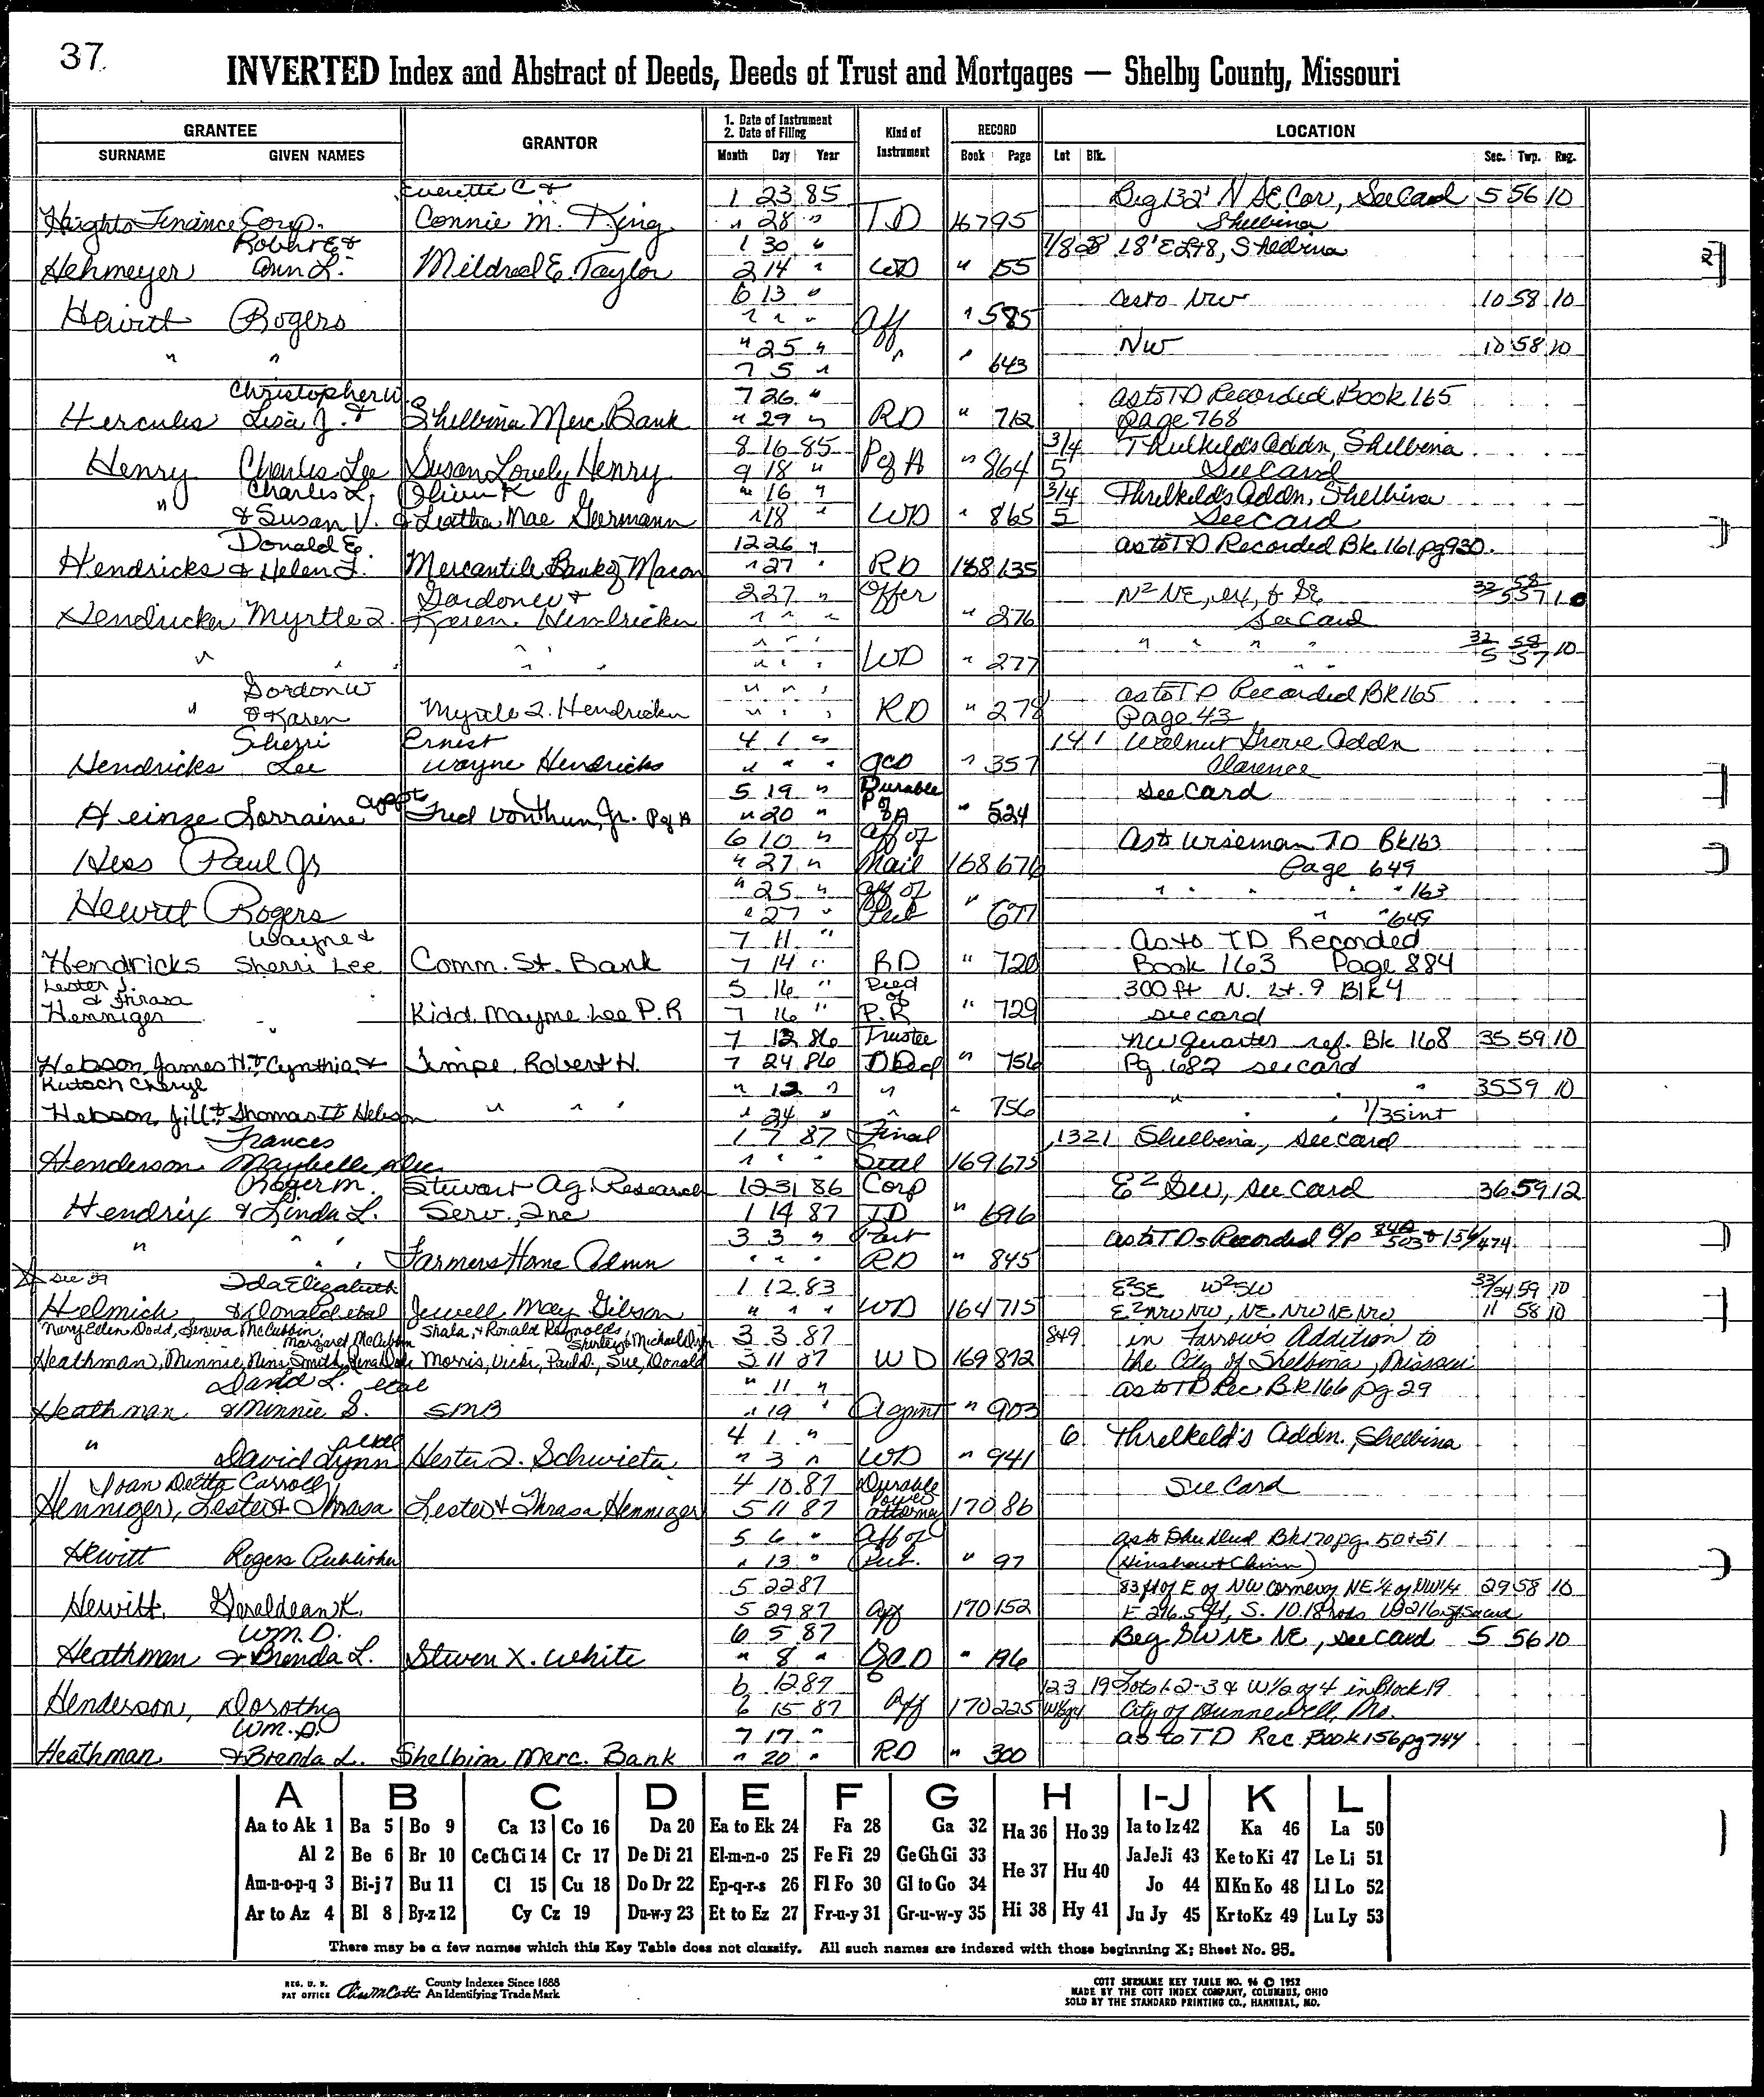 37
INVERTED Index and Abstract of Deeds, Deeds of Trust and Mortgages — Shelby County, Missouri
GRANTEE GRANTOR 1. Date of Instrument 2. Date of Filing Kind of Instrument RECORD LOCATION
SURNAME GIVEN NAMES Month Day Year Book Page Lot Blk. Sec. Twp. Rng.
Everette C & 1 23 85 Beg 132' N SE Cor, See Card 5 56 10
Heights Finance Corp. Connie M. King " 28 " TD 167 95 Shelbina
Robert E & 1 30 " 7/8 28 18' E Lt 8, Shelbina
Hehmeyer Ann L. Mildred E. Taylor 2 14 " WD " 155
6 13 " as to NW 10 58 10
Hewitt Rogers " " " Aff " 585
" 25 " NW 10 58 10
" " 7 5 " " " 643
Christopher W. 7 26 " as to TD Recorded Book 165
Hercules Lisa J. & Shelbina Merc. Bank " 29 " RD " 712 Page 768
8 16 85 3/4 Threlkeld's Addn, Shelbina
Henry Charles Lee Susan Lovely Henry 9 18 " P of A " 864 5 See Card
Charles L. Oliver K " 16 " 3/4 Threlkeld's Addn, Shelbina
" & Susan V. & Leatha Mae Geermann " 18 " WD " 865 5 See Card
Donald E. 12 26 " as to TD Recorded Bk 161 pg 930.
Hendricks & Helen L. Mercantile Bank of Macon " 27 " RD 168 135
Gordon W & 2 27 " Offer N2 NE, ex, & SE 32/5 58/57 10
Hendricker Myrtle I. Karen Hendricker " " " " 276 See Card
" " " " " " " " " " 32/5 58/57 10
" " " " " " " " WD " 277 " "
Gordon W " " " as to TD Recorded Bk 165
" & Karen Myrtle I. Hendricker " " " RD " 278 Page 43
Sherri Ernest 4 1 " 14 1 Walnut Grove Addn
Hendricks Lee Wayne Hendricks " " " QCD " 357 Clarence
5 19 " Durable P of See Card
Heinze Lorraine appt Fred Vonthun, Jr. P of A " 20 " A " 524
6 10 " Aff of As to Wiseman TD Bk 163
Hess Paul Jr " 27 " Mail 168 676 Page 649
" 25 " Aff of " " " " " 163
Hewitt Rogers " 27 " Pub " 677 " " 649
Wayne & 7 11 " As to TD Recorded
Hendricks Sherri Lee Comm. St. Bank 7 14 " RD " 720 Book 163 Page 884
Lester J. & Thrasa 5 16 " Deed of 300 ft N. Lt. 9 Blk 4
Henniger Kidd, Mayme Lee P.R 7 16 " P.R " 729 see card
7 12 86 Trustee NW Quarter ref. Bk 168 35 59 10
Hebson, James H. & Cynthia & Timpe, Robert H. 7 24 86 D Deed " 756 Pg 682 see card
Kutsch Cheryl " 12 " " " 35 59 10
Hebson, Jill & Thomas H Hebson " " " " 24 " " " 756 " " 1/35 int
Frances 1 7 87 Final 132 1 Shelbina, see card
Henderson Maybelle, Dec " " " Settl 169 675
Roger M. Stewart Ag. Research 12 31 86 Corp E2 SW, see card 36 59 12
Hendrix & Linda L. Serv., Inc 1 14 87 TD " 696
3 3 " Part as to TDs Recorded B/P 84A/503 & 156/474
" " " Farmers Home Admn " " " RD " 845
See 29 Ida Elizabeth 1 12 83 E2SE W2SW 33/34 59 10
Helmich & Donald etal Jewell May Gibson " " " WD 164 715 E2 NW NW, NE NW NE NW 11 58 10
Mary Eden Dodd, Geneva McCubbin, Margaret McCubbin Shala, & Ronald Reynolds, Shirley & Michael 3 3 87 8 49 in Farrow's Addition to
Heathman, Minnie, Nina Smith, Lena Dale Morris, Vicki, Paul D., Sue, Donald 3 11 87 WD 169 872 the City of Shelbina, Missouri
David L. etal " 11 " as to TD Rec Bk 166 pg 29
Heathman & Minnie S. SMB " 19 " Agmnt " 903
etal 4 1 " 6 Threlkeld's Addn., Shelbina
" David Lynn Hester I. Schwieter " 3 " WD " 941
Joan Deltta Carroll 4 10 87 Durable See Card
Henniger, Lester & Thrasa Lester & Thrasa Henniger 5 11 87 Power Attorney 170 86
5 6 " Aff of as to Bk 170 pg. 50 & 51
Hewitt Rogers Publisher " 13 " Pub. " 97 (Hinshaw & Chinn)
5 22 87 83 ft of E of NW corner of NE 1/4 of NW 1/4 29 58 10
Hewitt, Geraldean K. 5 29 87 Aff 170 152 E 296.5 ft, S. 10.18 rods W 216 ft See card
Wm. D. 6 5 87 Beg SW NE NE, see card 5 56 10
Heathman & Brenda L. Steven X. White " 8 " QCD " 196
6 12 87 123 19 Lots 1-2-3 & W 1/2 of 4 in Block 19
Henderson, Dorothy 6 15 87 Aff 170 225 W 1/2 of 4 City of Hunnewell, Mo.
Wm. D. 7 17 " as to TD Rec Book 156 pg 744
Heathman & Brenda L. Shelbina Merc. Bank " 20 " RD " 300
A B C D E F G H I-J K L
Aa to Ak 1 Ba 5 Bo 9 Ca 13 Co 16 Da 20 Ea to Ek 24 Fa 28 Ga 32 Ha 36 Ho 39 Ia to Iz 42 Ka 46 La 50
Al 2 Be 6 Br 10 Ce Ch Ci 14 Cr 17 De Di 21 El-m-n-o 25 Fe Fi 29 Ge Gh Gi 33 He 37 Hu 40 Ja Je Ji 43 Ke to Ki 47 Le Li 51
Am-n-o-p-q 3 Bi-j 7 Bu 11 Cl 15 Cu 18 Do Dr 22 Ep-q-r-s 26 Fl Fo 30 Gl to Go 34 Jo 44 Kl Kn Ko 48 Ll Lo 52
Ar to Az 4 Bl 8 By-z 12 Cy Cz 19 Du-w-y 23 Et to Ez 27 Fr-u-y 31 Gr-u-w-y 35 Hi 38 Hy 41 Ju Jy 45 Kr to Kz 49 Lu Ly 53
There may be a few names which this Key Table does not classify. All such names are indexed with those beginning X; Sheet No. 95.
REG. U. S. PAT OFFICE County Indexes Since 1888 An Identifying Trade Mark
COTT SURNAME KEY TABLE NO. 96 © 1952
MADE BY THE COTT INDEX COMPANY, COLUMBUS, OHIO
SOLD BY THE STANDARD PRINTING CO., HANNIBAL, MO.